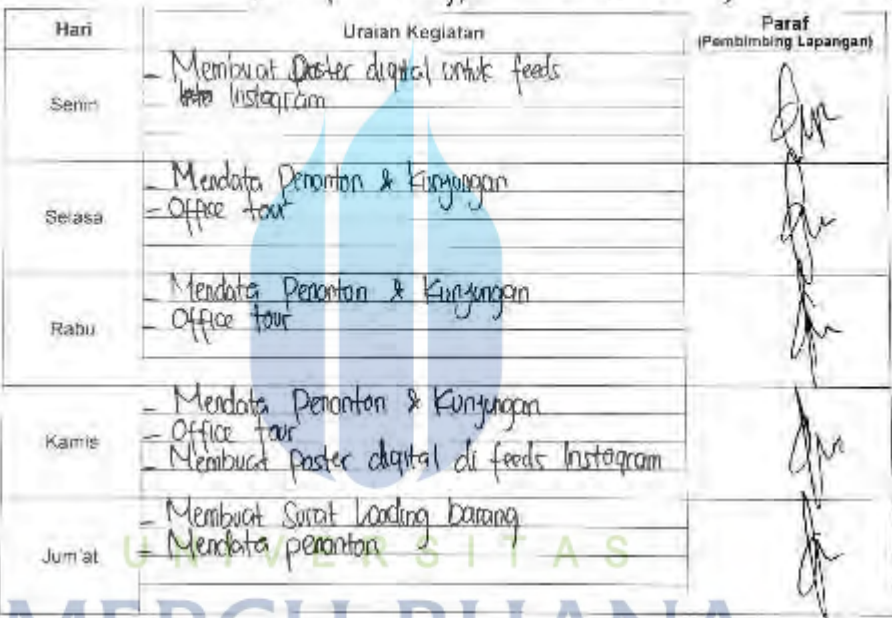 Hari Uraian Kegiatan Paraf
(Pembimbing Lapangan)
Senin
- Membuat Poster digital untuk feeds
Instagram
Selasa
- Mendata Penonton & Kunjungan
- Office tour
Rabu
- Mendata Penonton & Kunjungan
- Office tour
Kamis
- Mendata Penonton & Kunjungan
- Office tour
- Membuat poster digital di feeds Instagram
Jum'at
- Membuat Surat Loading barang
- Mendata penonton
UNIVERSITAS
MERCU BUANA